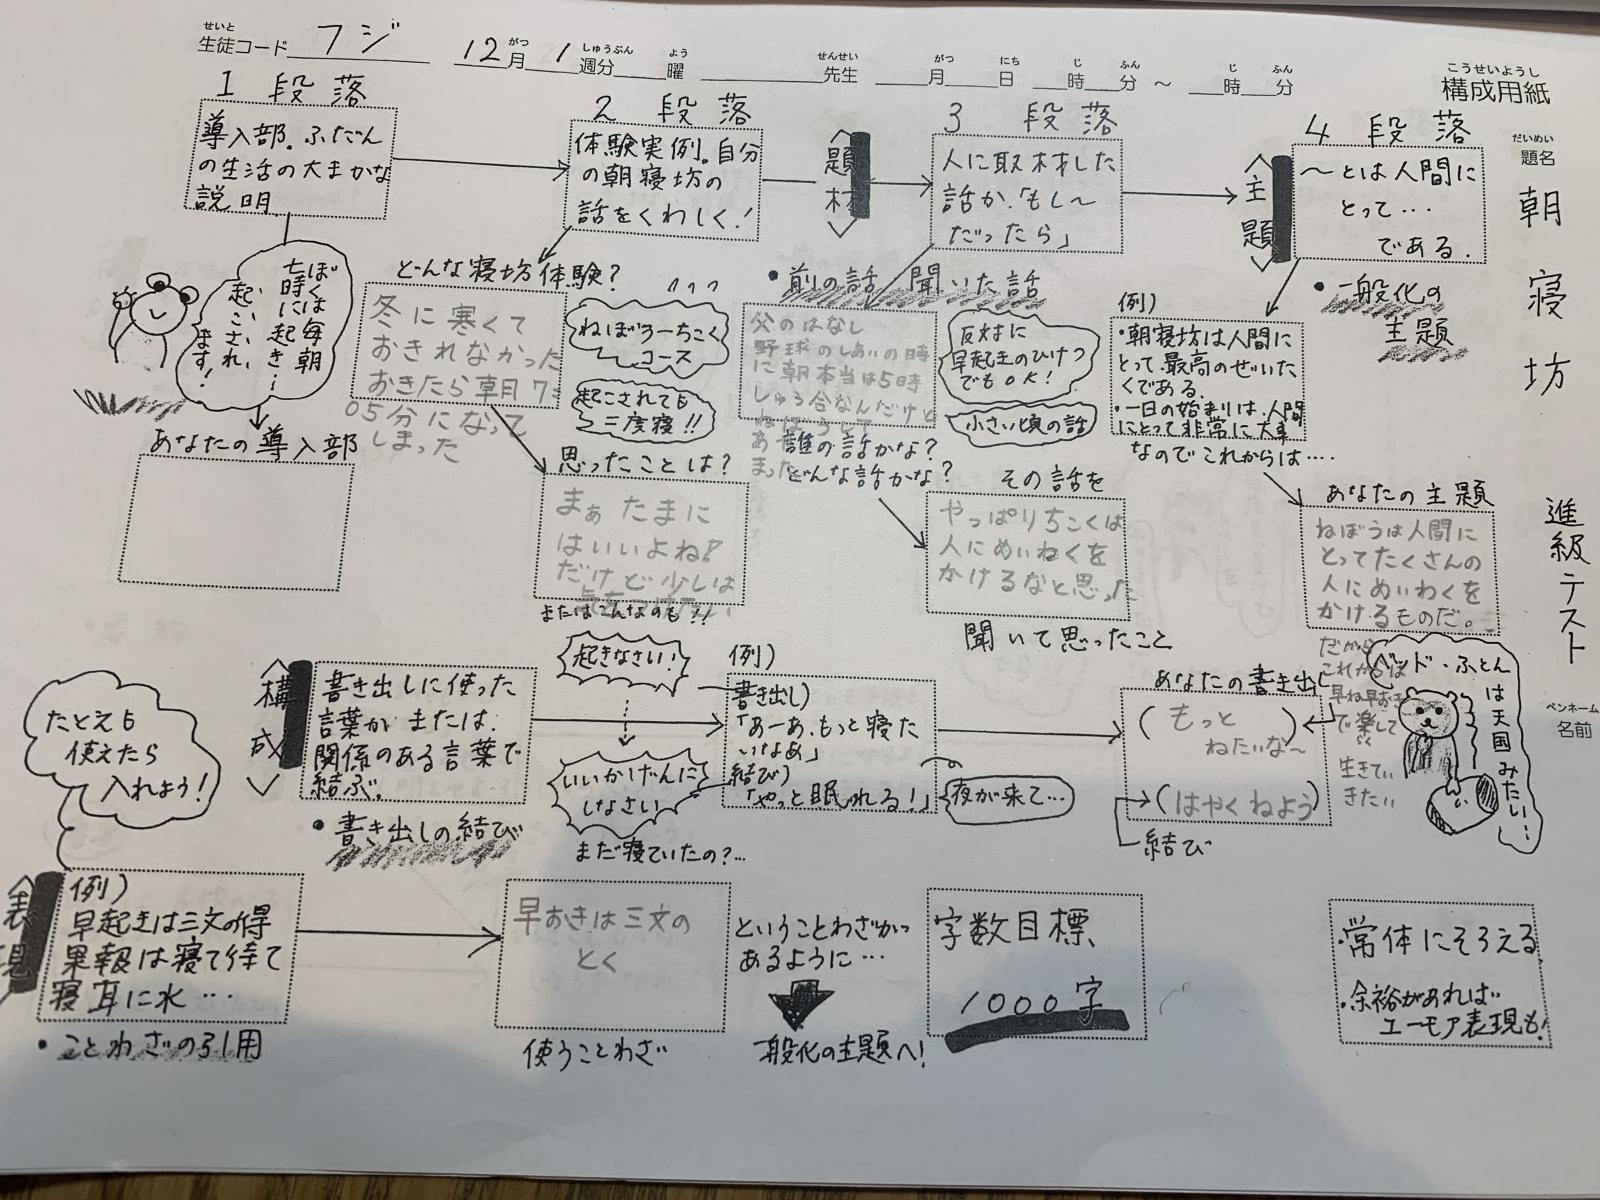 生徒コード フジ 12月 1週分 曜 先生 月 日 時 分 〜 時 分
せいと がつ しゅうぶん よう せんせい がつ にち じ ふん じ ふん
こうせいようし
構成用紙
だいめい
題名
朝寝坊
進級テスト
ペンネーム
名前
1段落
導入部.ふだん
の生活の大まかな
説明
ぼくは毎朝
七時に起き…
起こされ
ます!
あなたの導入部
2段落
体験実例.自分
の朝寝坊の
話をくわしく!
どんな寝坊体験?
冬に寒くて
おきれなかった
おきたら朝7:
05分になって
しまった
ねぼう→ちこく
コース
起こされても
三度寝!!
思ったことは?
まぁたまに
はいいよね!
だけど少しは
またはこんなのも?!
<題材>
3段落
人に取材した
話か.「もし〜
だったら」
・前の話 聞いた話
父のはなし
野球のしあいの時
に朝本当は5時
しゅう合なんだけど
ねぼうして
あ
まった
誰の話かな?
どんな話かな?
反対に
早起きのひけつ
でもOK!
小さい頃の話
その話を
やっぱりちこくは
人にめいわくを
かけるなと思った
聞いて思ったこと
<主題>
4段落
〜とは人間に
とって…
である.
・一般化の
主題
例)
・朝寝坊は人間に
とって最高のぜいた
くである.
・一日の始まりは.人間
にとって非常に大事
なのでこれからは….
あなたの主題
ねぼうは人間に
とってたくさんの
人にめいわくを
かけるものだ。
だから
これからは
早ね早おき
で楽して
生きてい
きたい
ベッド・ふとん
は天国みたい…
たとえも
使えたら
入れよう!
<構成>
書き出しに使った
言葉か または.
関係のある言葉で
結ぶ.
・書き出しの結び
起きなさい!
いいかげんに
しなさい
まだ寝ていたの?…
例)
書き出し)
「あーあ.もっと寝た
いなあ」
結び)
「やっと眠れる!」
夜が来て…
あなたの書き出し
(もっと
ねたいな〜)
(はやくねよう)
結び
<表現>
例)
早起きは三文の得
果報は寝て待て
寝耳に水…
・ことわざの引用
早おきは三文の
とく
使うことわざ
ということわざが
あるように…
一般化の主題へ!
字数目標
1000字
・常体にそろえる
・余裕があれば
ユーモア表現も!